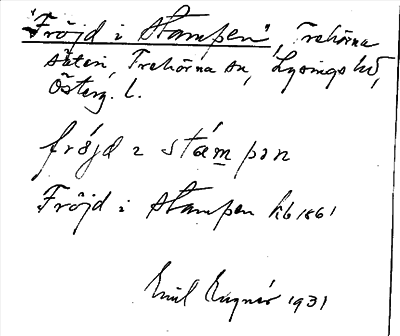 "Fröjd i Stampen", Trehörna
säteri, Trehörna sn, Lysings hd,
Österg. l.
frö́jd ɩ stám̲pən
Fröjd i Stampen hb 1861
Emil Eugnér 1931